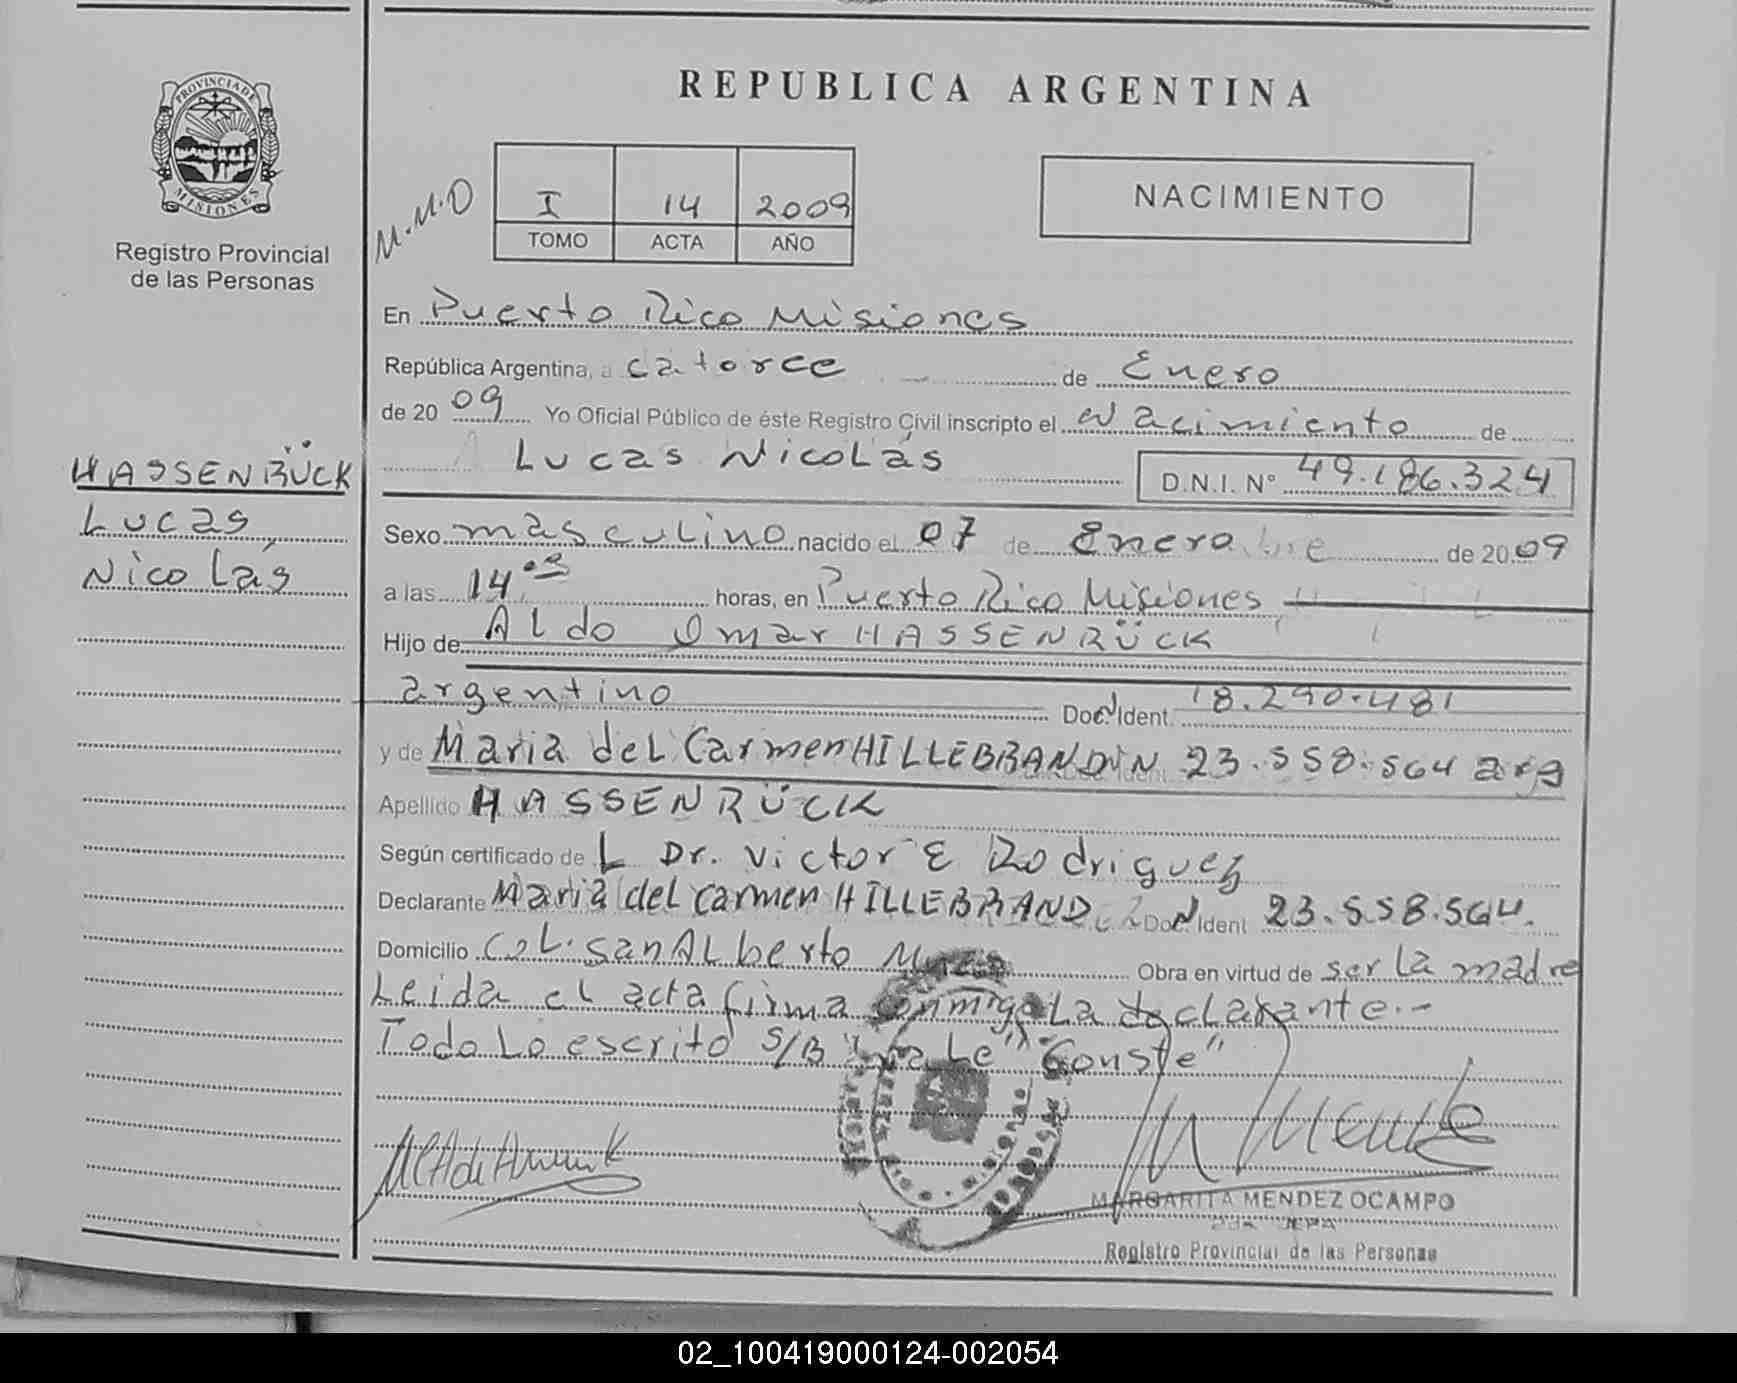 REPUBLICA ARGENTINA
PROVINCIA DE
MISIONES
Registro Provincial
de las Personas
M.M.O
I 14 2009
TOMO ACTA AÑO
NACIMIENTO
En Puerto Rico Misiones
República Argentina, a catorce de Enero
de 2009 Yo Oficial Público de éste Registro Civil inscripto el Nacimiento de
Lucas Nicolás D.N.I. N° 49.186.324
HASSENRÜCK
Lucas
Nicolás
Sexo masculino nacido el 07 de Enero de 2009
a las 14 horas, en Puerto Rico Misiones
Hijo de Aldo Omar HASSENRÜCK
argentino Doc. Ident. 18.290.481
y de Maria del Carmen HILLEBRAND 23.558.564 arg
Apellido HASSENRÜCK
Según certificado de L Dr. Victor E Rodriguez
Declarante Maria del Carmen HILLEBRAND Doc. Ident 23.558.564.
Domicilio Col. San Alberto Mnes Obra en virtud de ser la madre
Leida el acta firma conmigo La declarante.-
Todo Lo escrito S/B "Vale" "Conste"
MARGARITA MENDEZ OCAMPO
JEFA
Registro Provincial de las Personas
02_100419000124-002054